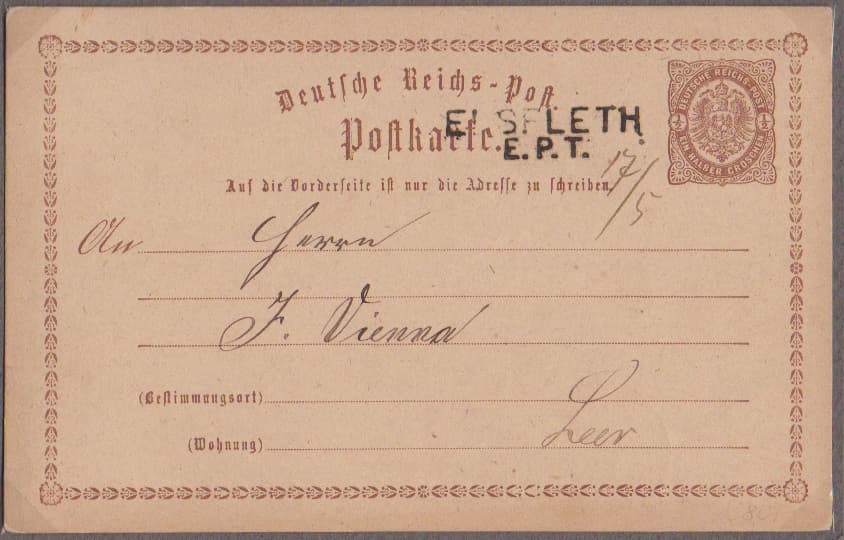 Deutsche Reichs-Post
DEUTSCHE REICHS-POST
½ ½
EIN HALBER GROSCHEN
Postkarte.
EL SFLETH.
E. P. T.
17/5
Auf die Vorderseite ist nur die Adresse zu schreiben.
An Herrn
F. Vienna
(Bestimmungsort)
Leer
(Wohnung)